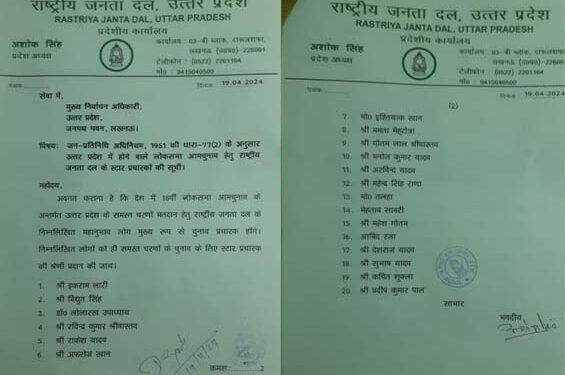 राष्ट्रीय जनता दल, उत्तर प्रदेश
RASTRIYA JANTA DAL, UTTAR PRADESH
प्रदेशीय कार्यालय
अशोक सिंह
प्रदेश अध्यक्ष
कार्यालय : 03-बी ब्लाक, दारूलशफा,
लखनऊ (उ0प्र0)-226001
टेलीफोन : (0522) 2201164
मो0 : 9415040500
पत्रांक
दिनांक 19.04.2024
सेवा में,
मुख्य निर्वाचन अधिकारी,
उत्तर प्रदेश,
जनपथ भवन, लखनऊ।
विषयः जन-प्रतिनिधि अधिनियम, 1951 की धारा-77(2) के अनुसार
उत्तर प्रदेश में होने वाले लोकसभा आमचुनाव हेतु राष्ट्रीय
जनता दल के स्टार प्रचारकों की सूची।
महोदय,
अवगत कराना है कि देश में 18वीं लोकसभा आमचुनाव के
अन्तर्गत उत्तर प्रदेश के समस्त चरणों मतदान हेतु राष्ट्रीय जनता दल के
निम्नलिखित महानुभाव लोग मुख्य रूप से चुनाव प्रचारक होंगे।
निम्नलिखित लोगों को ही समस्त चरणों के चुनाव के लिए स्टार प्रचारक
की श्रेणी प्रदान की जाय।
1. श्री इकराम लारी
2. श्री विद्युत सिंह
3. डॉ0 लोलारख उपाध्याय
4. श्री रविन्द्र कुमार श्रीवास्तव
5. श्री राकेश यादव
6. श्री अफरोज खान
19/4/24
क्रमशः..........2
राष्ट्रीय जनता दल, उत्तर प्रदेश
RASTRIYA JANTA DAL, UTTAR PRADESH
प्रदेशीय कार्यालय
अशोक सिंह
प्रदेश अध्यक्ष
कार्यालय : 03-बी ब्लाक, दारूलशफा,
लखनऊ (उ0प्र0)-226001
टेलीफोन : (0522) 2201164
मो0 : 9415040500
पत्रांक
दिनांक 19.04.2024
(2)
7. मो0 इश्तियाक खान
8. श्री ममता मेहरोत्रा
9. श्री गौतम लाल श्रीवास्तव
10. श्री मनोज कुमार यादव
11. श्री अरविन्द यादव
12. श्री महेन्द्र सिंह राणा
13. मो0 तलहा
14. मेहताब साबरी
15. श्री महेश गौतम
16. आबिद रजा
17. श्री देशराज यादव
18. श्री सुभाष यादव
19. श्री कपिल शुक्ला
20. श्री प्रदीप कुमार पाल
साभार
भवदीय